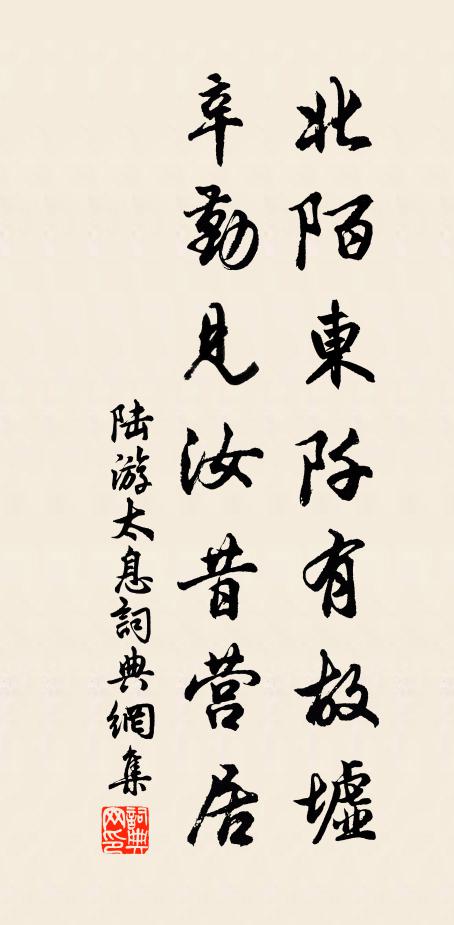 北陌東阡有故墟
辛勤見汝昔営居
陆游太息詞典網集
詞典网印